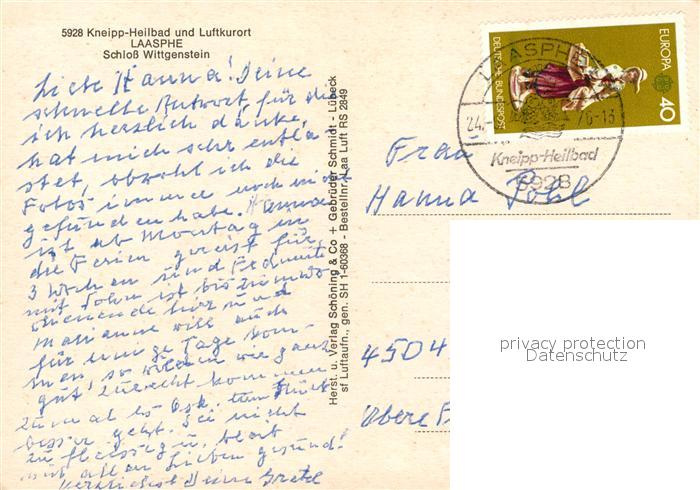 5928 Kneipp-Heilbad und Luftkurort
LAASPHE
Schloß Wittgenstein
Liebe Hanna! Deine
schnelle Antwort, für die
ich herzlich danke,
hat mich sehr entla-
stet, obwohl ich die
Fotos immer noch nicht
gefunden habe. Hanna
ist ab Montag in
die Ferien gereist für
3 Wochen und
mit Sohn ist bis zum Wo-
chenende hier und
Marianne will auch
für einige Tage kom-
men, so werden wir ganz
gut zurecht kommen
zumal es Osk. zum Glück
besser geht. Sei nicht
zu fleissig u. bleib
mit allen Lieben gesund!
Herzlichst Deine Gretel
Herst. u. Verlag Schöning & Co + Gebrüder Schmidt - Lübeck
sf Luftaufn., gen. SH 1-60368 - Bestellnr. Laa Luft RS 2849
EUROPA
40
DEUTSCHE BUNDESPOST
LAASPHE
24.
76-13
Kneipp-Heilbad
5928
Frau
Hanna Pohl
4504
Obere
privacy protection
Datenschutz